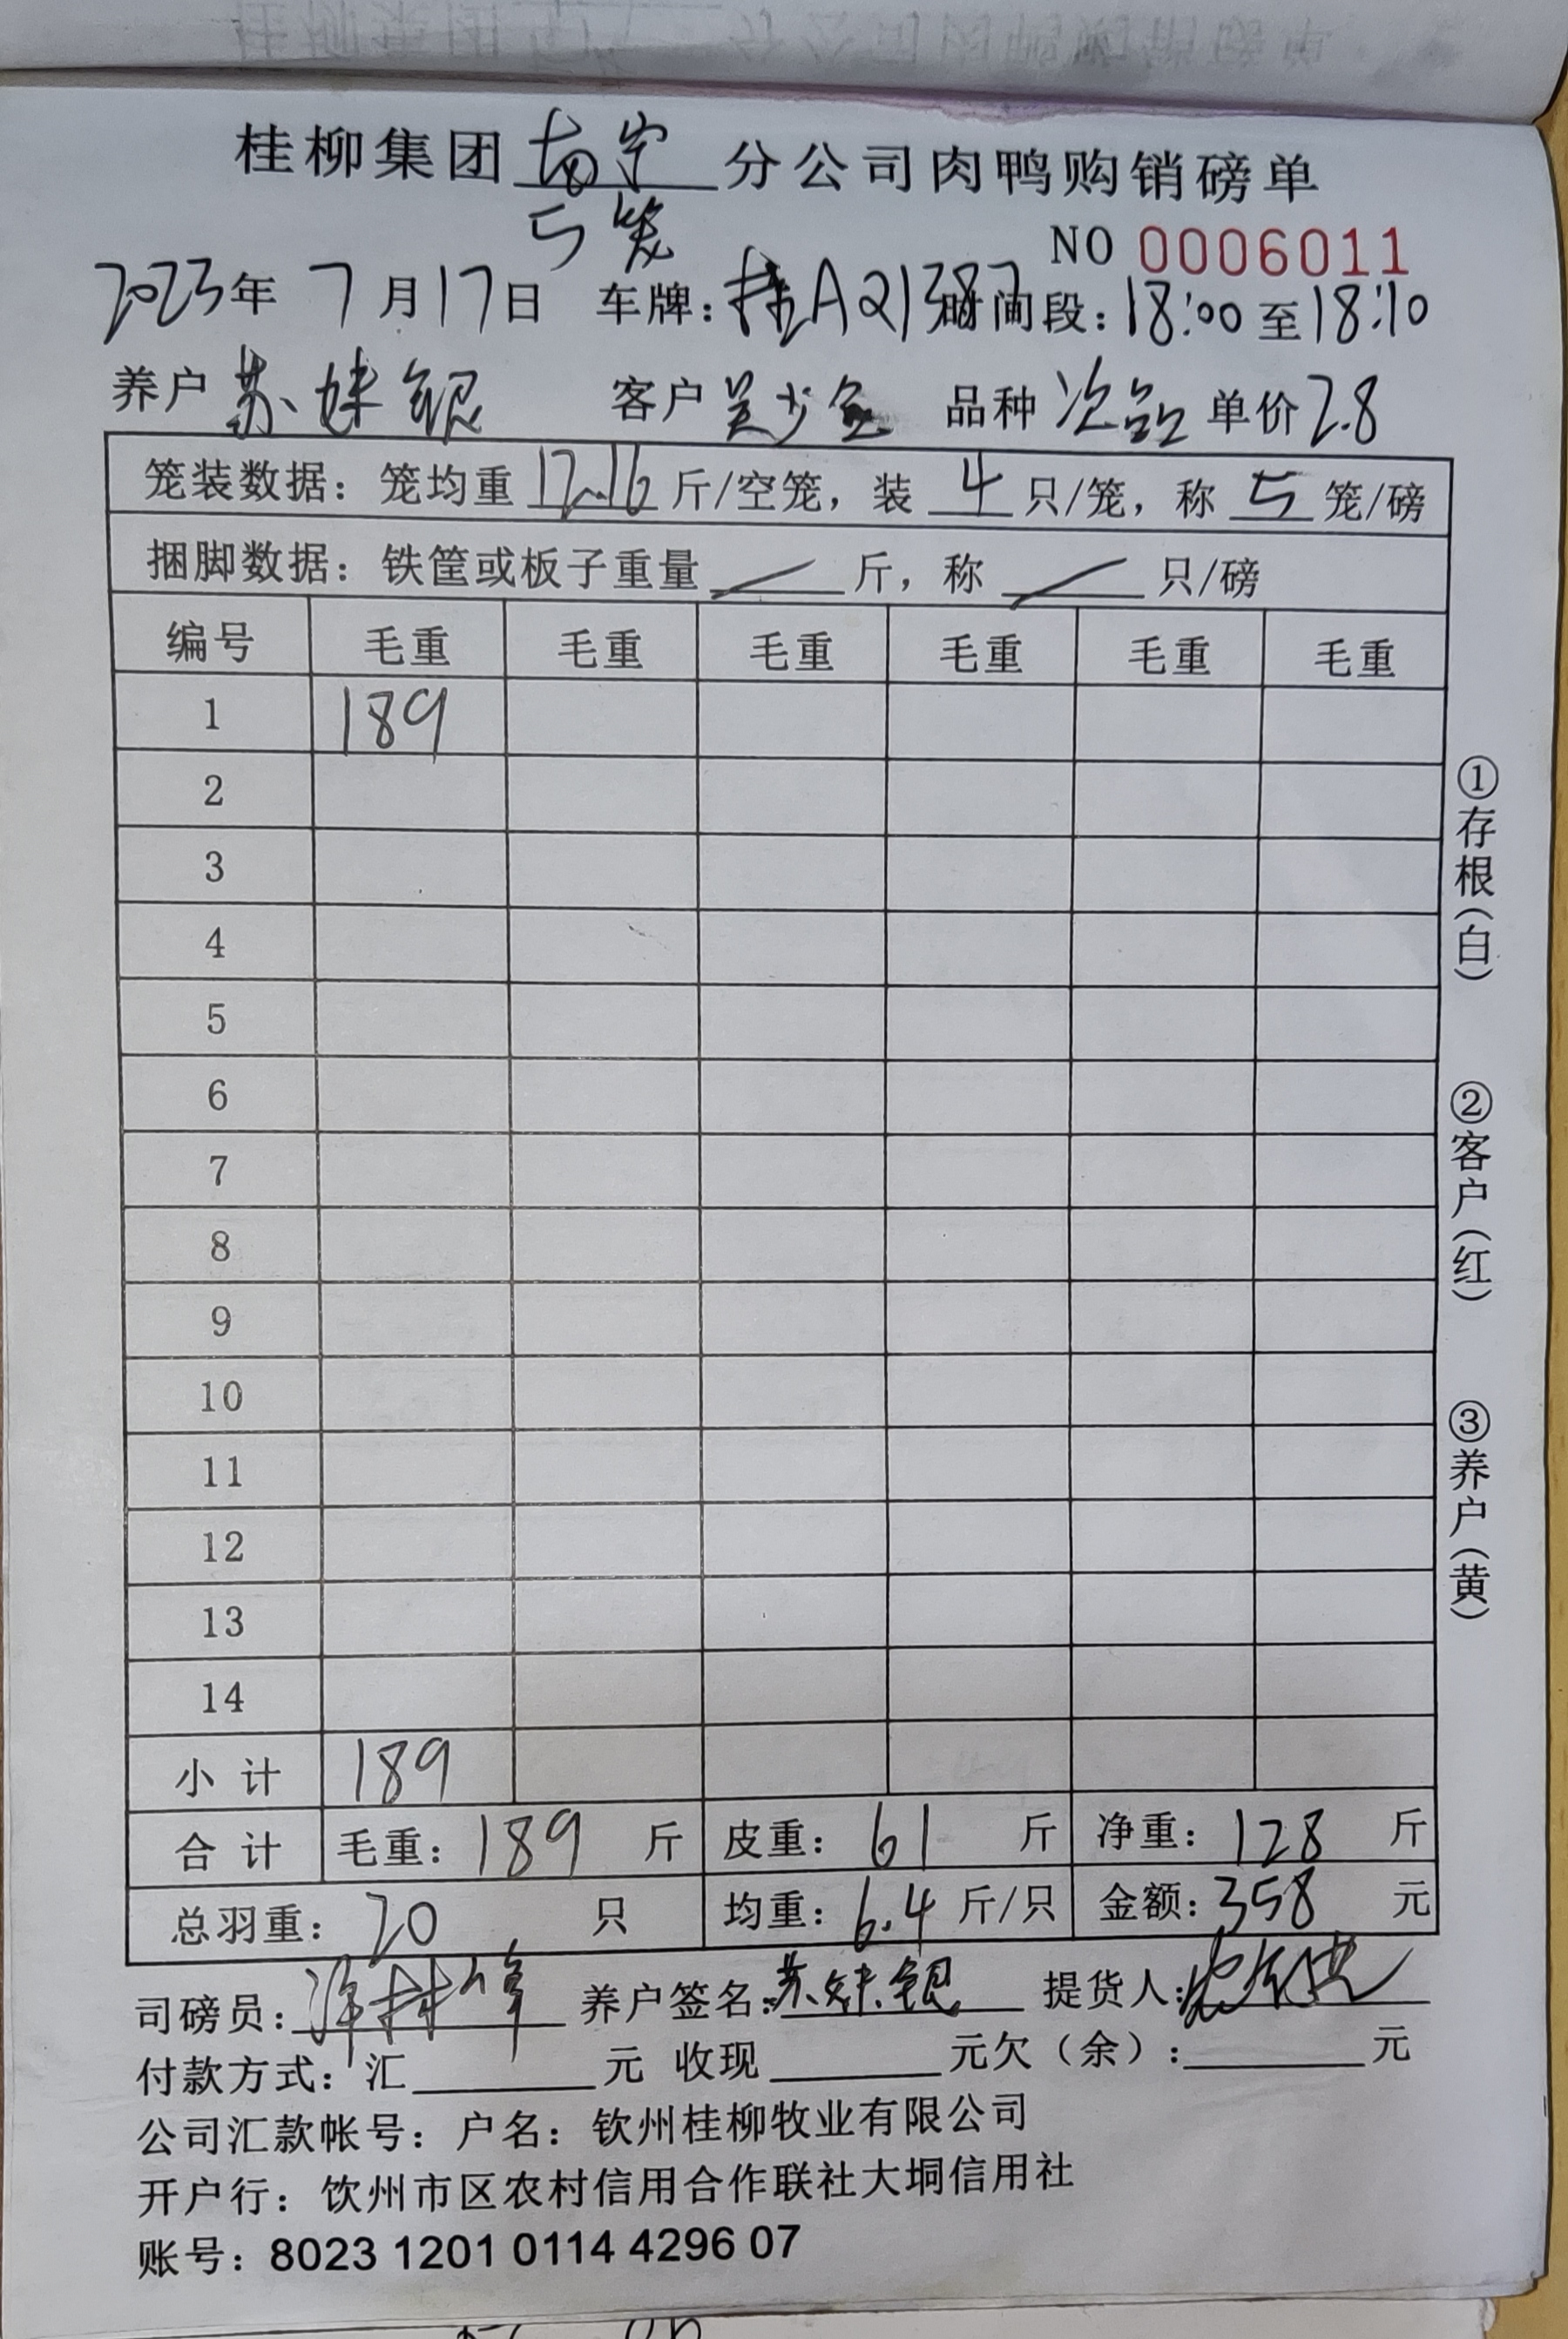 桂柳集团南宁分公司肉鸭购销磅单
5笼
NO 0006011
2023年 7月17日 车牌：桂A21387 时间段：18:00至18:10
养户 苏妹银 客户 吴少 品种 次品 单价 2.8
笼装数据：笼均重 12.16 斤/空笼，装 4 只/笼，称 5 笼/磅
捆脚数据：铁筐或板子重量 / 斤，称 / 只/磅
编号 毛重 毛重 毛重 毛重 毛重 毛重
1 189
2
3
4
5
6
7
8
9
10
11
12
13
14
小计 189
合计 毛重：189 斤 皮重：61 斤 净重：128 斤
总羽重：20 只 均重：6.4 斤/只 金额：358 元
司磅员： 养户签名：苏妹银 提货人：
付款方式：汇______元 收现______元欠（余）：______元
公司汇款帐号：户名：钦州桂柳牧业有限公司
开户行：饮州市区农村信用合作联社大垌信用社
账号：8023 1201 0114 4296 07
①存根（白）
②客户（红）
③养户（黄）